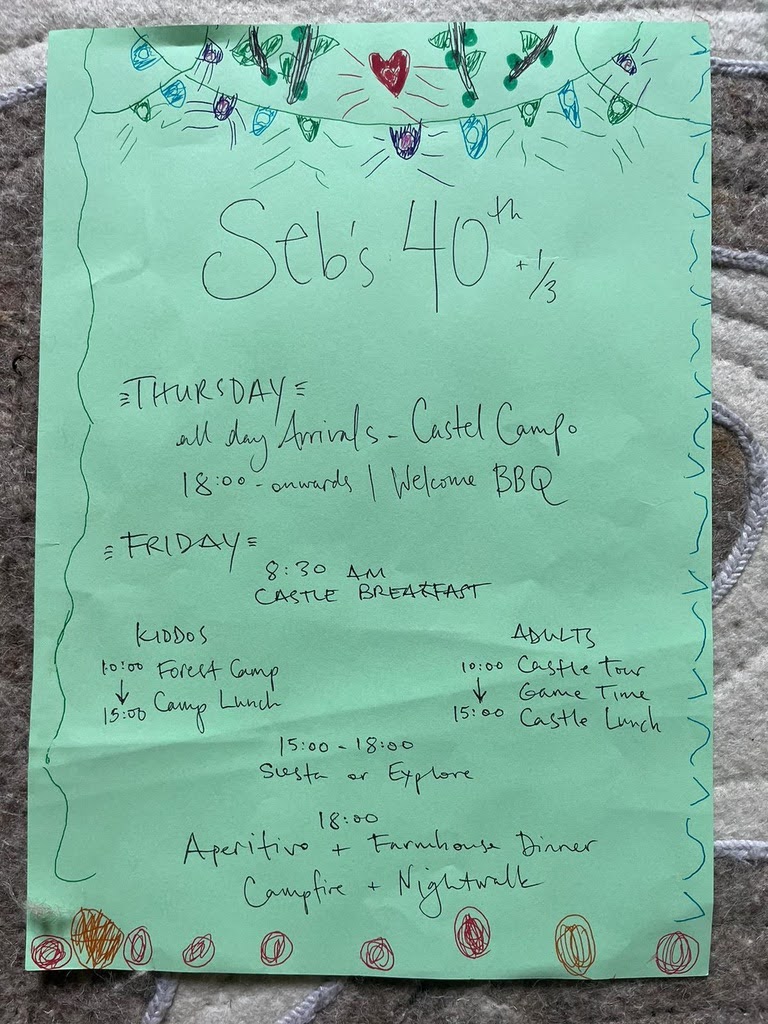 Seb's 40th + 1/3
THURSDAY
all day Arrivals - Castel Campo
18:00 - onwards | Welcome BBQ
FRIDAY
8:30 AM
CASTLE BREAKFAST
KIDDOS
10:00 Forest Camp
↓ Camp Lunch
15:00
ADULTS
10:00 Castle Tour
↓ Game Time
15:00 Castle Lunch
15:00 - 18:00
Siesta or Explore
18:00
Aperitivo + Farmhouse Dinner
Campfire + Nightwalk